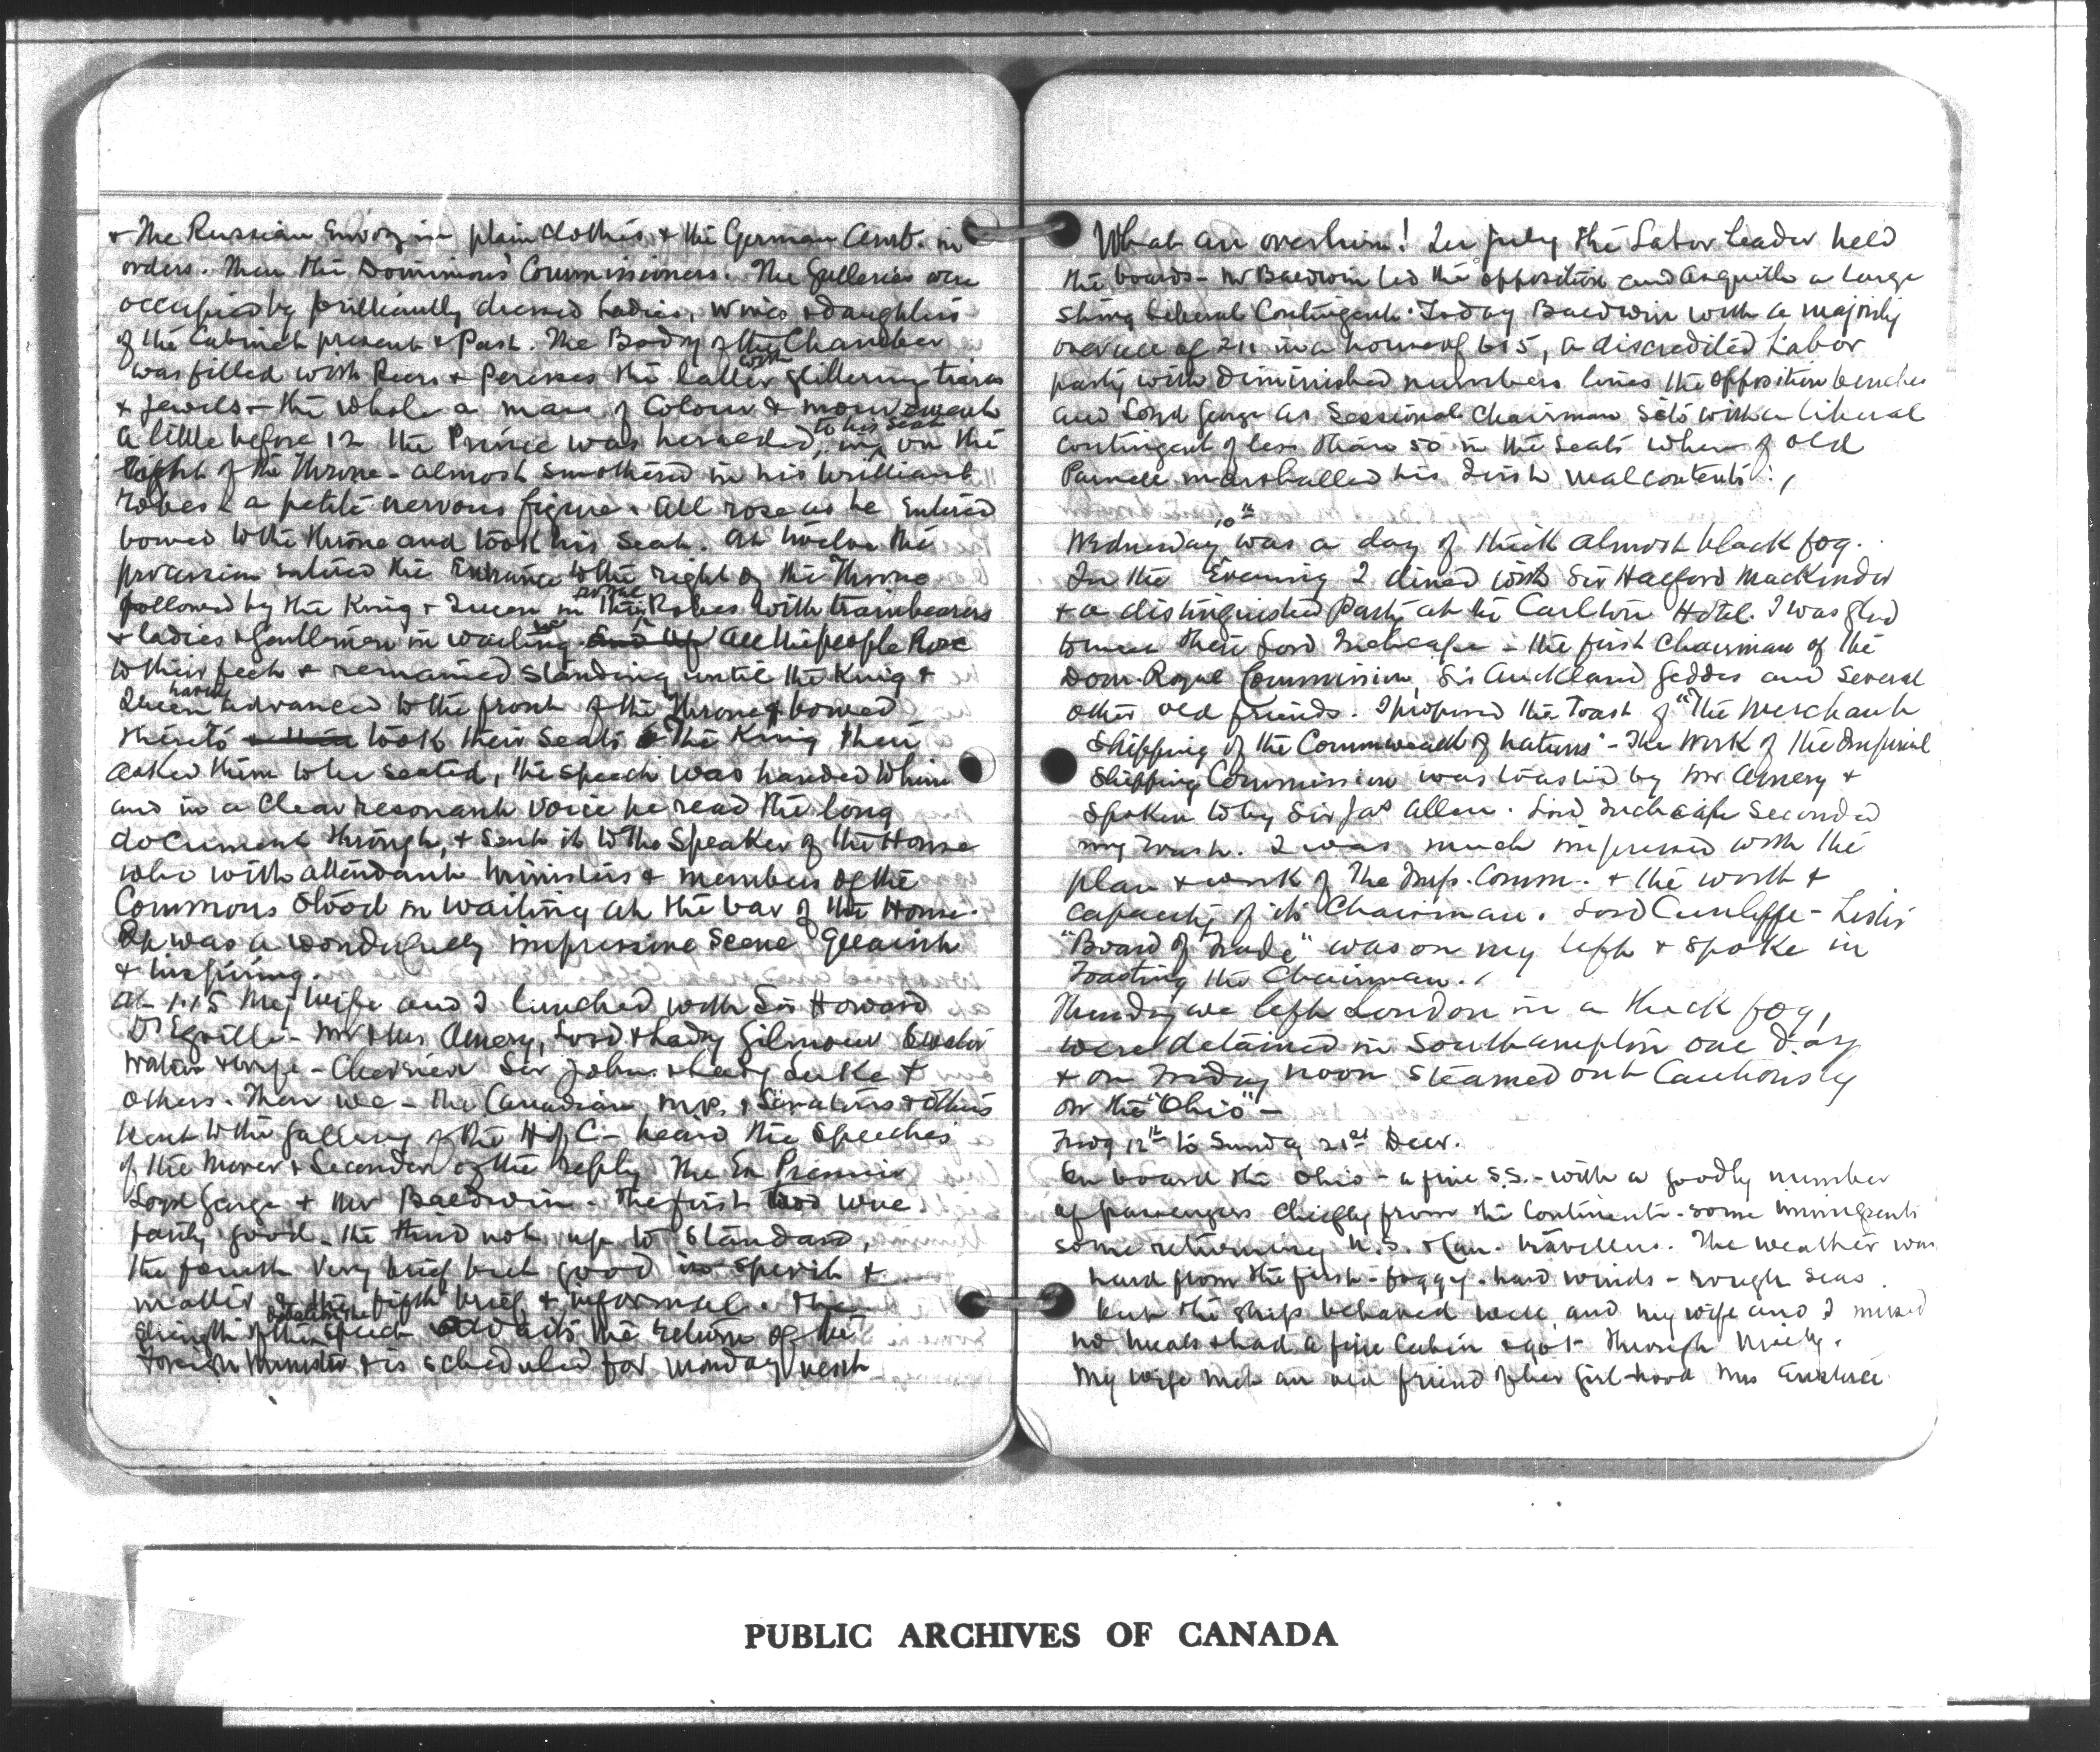 & the Russian Envoy in plain clothes & the German Amb. in
orders. Then the Dominions' Commissioners. The Galleries were
occupied by brilliantly dressed Ladies, wives & daughters
of the Cabinet present & Past. The Body of the Chamber
was filled with Peers & Peresses the latter with glittering tiaras
& jewels - the whole a mass of Colour & movement
A little before 12 the Prince was heralded in, to his seat on the
right of the Throne - almost smothered in his brilliant
robes - a petite nervous figure. All rose as he entered
bowed to the throne and took his seat. At twelve the
procession entered the Entrance to the right of the Throne
followed by the King & Queen in their Robes with trainbearers
& ladies & Gentlemen in waiting All the people Rose
to their feet & remained standing until the King &
Queen having advanced to the front of the Throne & bowed
thereto took their Seats The King then
asked them to be seated, the speech was handed to him
and in a clear resonant voice he read the long
document through, & sent it to the Speaker of the House
who with attendant ministers & members of the
Commons stood in waiting at the bar of the House.
It was a wonderfully impressive scene quaint
& inspiring.
At 1.15 My wife and I lunched with Sir Howard
D'Egville - Mr & Mrs Amery, Lord & Lady Gilmour Senator
& wife - Sir John & Lady Luke &
others. Then we - the Canadian M.P.s, Senators & others
went to the gallery of the H. of C. - heard the speeches
of the Mover & Seconder of the reply The Ex Premier
Loyd George & Mr Baldwin. The first two were
fairly good - the third not up to standard,
the fourth very brief but good in spirit &
matter & the fifth brief & informal. The
strength of the speech awaits the return of the
Foreign Minister & is scheduled for Monday next
What an overturn! In July the Labor Leader held
the boards - Mr Baldwin led the opposition and Asquith a large
strong Liberal Contingent. Today Baldwin with a majority
over all of 211 in a house of 615, a discredited Labor
party with diminished numbers lines the opposition benches
and Loyd George as Sessional Chairman sits with a liberal
contingent of less than 50 in the seats where of old
Parnell marshalled his Irish malcontents.
Wednesday 10th was a day of thick almost black fog.
In the Evening I dined with Sir Halford Mackinder
& a distinguished Party at the Carlton Hotel. I was glad
to meet there Lord Inchcape - the first Chairman of the
Dom. Royal Commission, Sir Auckland Geddes and several
other old friends. I proposed the Toast of "The Merchant
Shipping of the Commonwealth of Nations" - The Work of the Imperial
Shipping Commission was toasted by Mr Amery &
spoken to by Sir Jas Allen. Lord Inchcape seconded
my toast. I was much impressed with the
plan & work of The Imp. Comm. & the worth &
capacity of its Chairman. Lord Cunliffe-Lister
"Board of Trade" was on my left & spoke in
Toasting the Chairman.
Thursday we left London in a thick fog,
were detained in Southampton one day
& on Friday noon steamed out cautiously
on the "Ohio" -
Friday 12th to Sunday 21st Decr.
On board the Ohio - a fine S.S. - with a goodly number
of passengers chiefly from the Continent - some immigrants
some returning U.S. & Can. travellers. The weather was
hard from the first - foggy - hard winds - rough seas.
but the ship behaved well and my wife and I missed
no meals & had a fine Cabin & got through nicely.
My wife met an old friend of her girl-hood Mrs
PUBLIC ARCHIVES OF CANADA